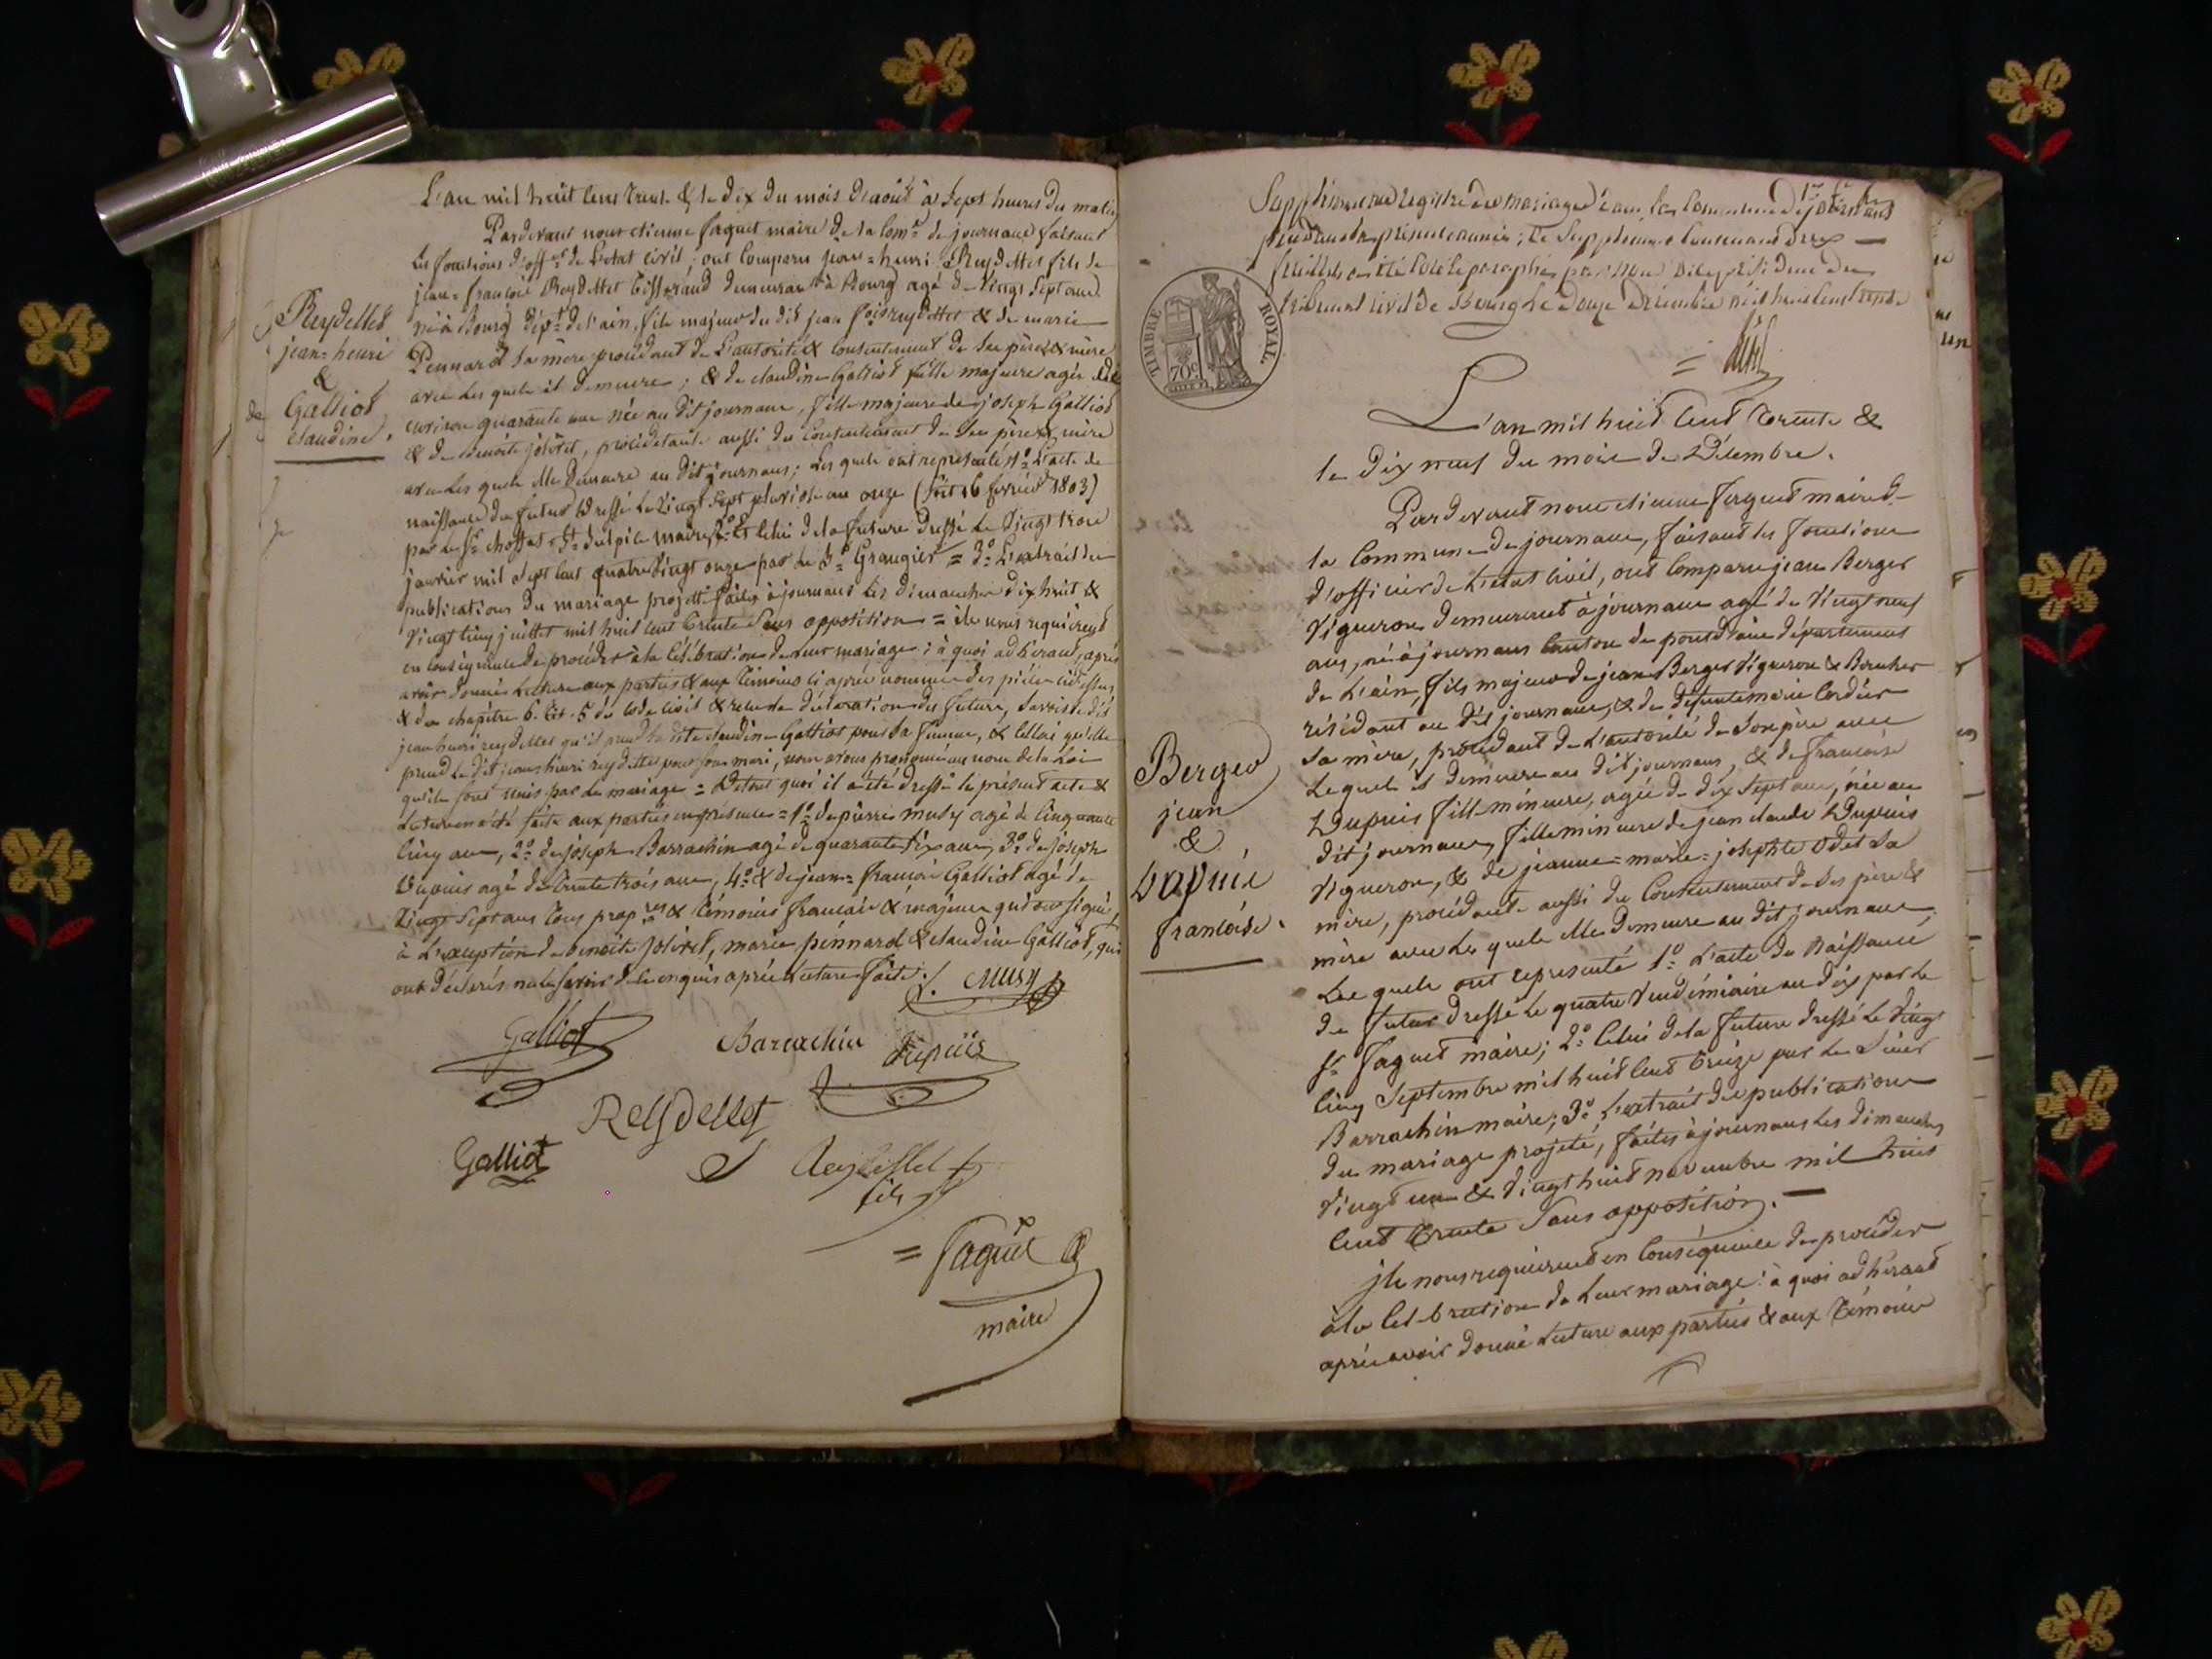 L'an mil huit cent trente & le dix du mois d'aout à sept heures du matin
Pardevant nous etienne faguet maire de la Com.e de journans faisant
les fonctions d'off.er de L'etat civil, ont comparu jean=henri Reydellet fils de
jean=françois Reydellet tisserand demeurant à Bourg agé de vingt sept ans
né à Bourg dép.t de l'ain, fils majeur du dit jean f.ois reydellet & de marie
Pennard sa mère procédant de L'autorité & consentement de ses père & mère
avec les quels il demeure ; & de claudine Galliot fille majeure agée de
environ quarante ans née au dit journans, fille majeure de joseph Galliot
& de benoite jolivet, procédante aussi du consentement de ses père & mère
avec les quels elle demeure au dit journans ; Les quels ont representé 1.o L'acte de
naissance du futur dressé le vingt sept pluviose an onze (soit 16 fevrier 1803)
par le S.r chossat S.t Sulpice maire ; 2.o Celui de la future dressé le vingt trois
janvier mil sept cent quatre vingt onze par le S.r Grangier = 3.o L'extrait des
publications du mariage projetté faites à journans les dimanches dix huit &
vingt cinq juillet mil huit cent trente sans opposition = ils nous requirent
en conséquence de procéder à la célébration de leur mariage ; à quoi adhérant, après
avoir donné Lecture aux parties & aux témoins ci après nommés des pièces ci dessus
& du chapitre 6. tit. 5 du code civil & reçu la déclaration des futurs, savoir le dit
jean henri reydellet qu'il prend la dite claudine Galliot pour sa femme, & celle ci qu'elle
prend le dit jean=henri reydellet pour son mari, nous avons prononcé au nom de la Loi
qu'ils sont unis par le mariage = de tout quoi il a été dressé le présent acte &
Lecture en a été faite aux parties en présence = 1.o de pierre musy agé de cinquante
cinq ans, 2.o de joseph Barrachin agé de quarante six ans, 3.o de joseph
Dupuis agé de trente trois ans, 4.o & de jean=françois Galliot agé de
vingt sept ans tous prop.res & témoins français & majeurs qui ont signé,
à L'exception de benoite jolivet, marie pennard & claudine Galliot, qui
ont déclaré ne le savoir de ce enquis après Lecture faite ./.
Musy
Galliot
Barrachin
Dupuis
Reydellet
Galliot
Reydellet
fils
= faguet
maire
Reydellet
jean=henri
&
Galliot
claudine.
Supplément au registre des mariages dans la Commune de journans
pendant la présente année ; ce Supplément contenant deux
feuillets a été coté & paraphé par Nous Vice président du
tribunal civil de Bourg le douze Décembre mil huit cent trente
TIMBRE ROYAL
70c.
L'an mil huit cent trente &
le dix neuf du mois de Décembre.
Pardevant nous etienne faguet maire de
la Commune de journans, faisant les fonctions
d'officier de L'etat civil, ont comparu jean Berger
vigneron demeurant à journans agé de vingt neuf
ans, né à journans canton de pont d'ain département
de L'ain, fils majeur de jean Berger vigneron & Boucher
résidant au dit journans, & de défunte marie Cordier
sa mère, procédant de L'autorité de son père avec
Lequel il demeure au dit journans, & de françoise
Dupuis fille mineure, agée de dix sept ans, née au
dit journans, fille mineure de jean claude Dupuis
vigneron, & de jeanne=marie=josephte Odet sa
mère, procédante aussi du Consentement de ses père &
mère avec les quels elle demeure au dit journans,
Les quels ont representé 1.o L'acte de Naissance
du futur dressé le quatre vendémiaire an dix par le
S.r faguet maire ; 2.o Celui de la future dressé le vingt
cinq Septembre mil huit cent treize par le Sieur
Barrachin maire ; 3.o L'extrait des publications
du mariage projeté, faites à journans les dimanches
vingt un & vingt huit novembre mil huit
cent trente sans opposition.
ils nous requièrent en conséquence de procéder
à la célébration de leur mariage : à quoi adhérant
après avoir donné Lecture aux parties & aux témoins
Berger
jean
&
Dupuis
françoise.